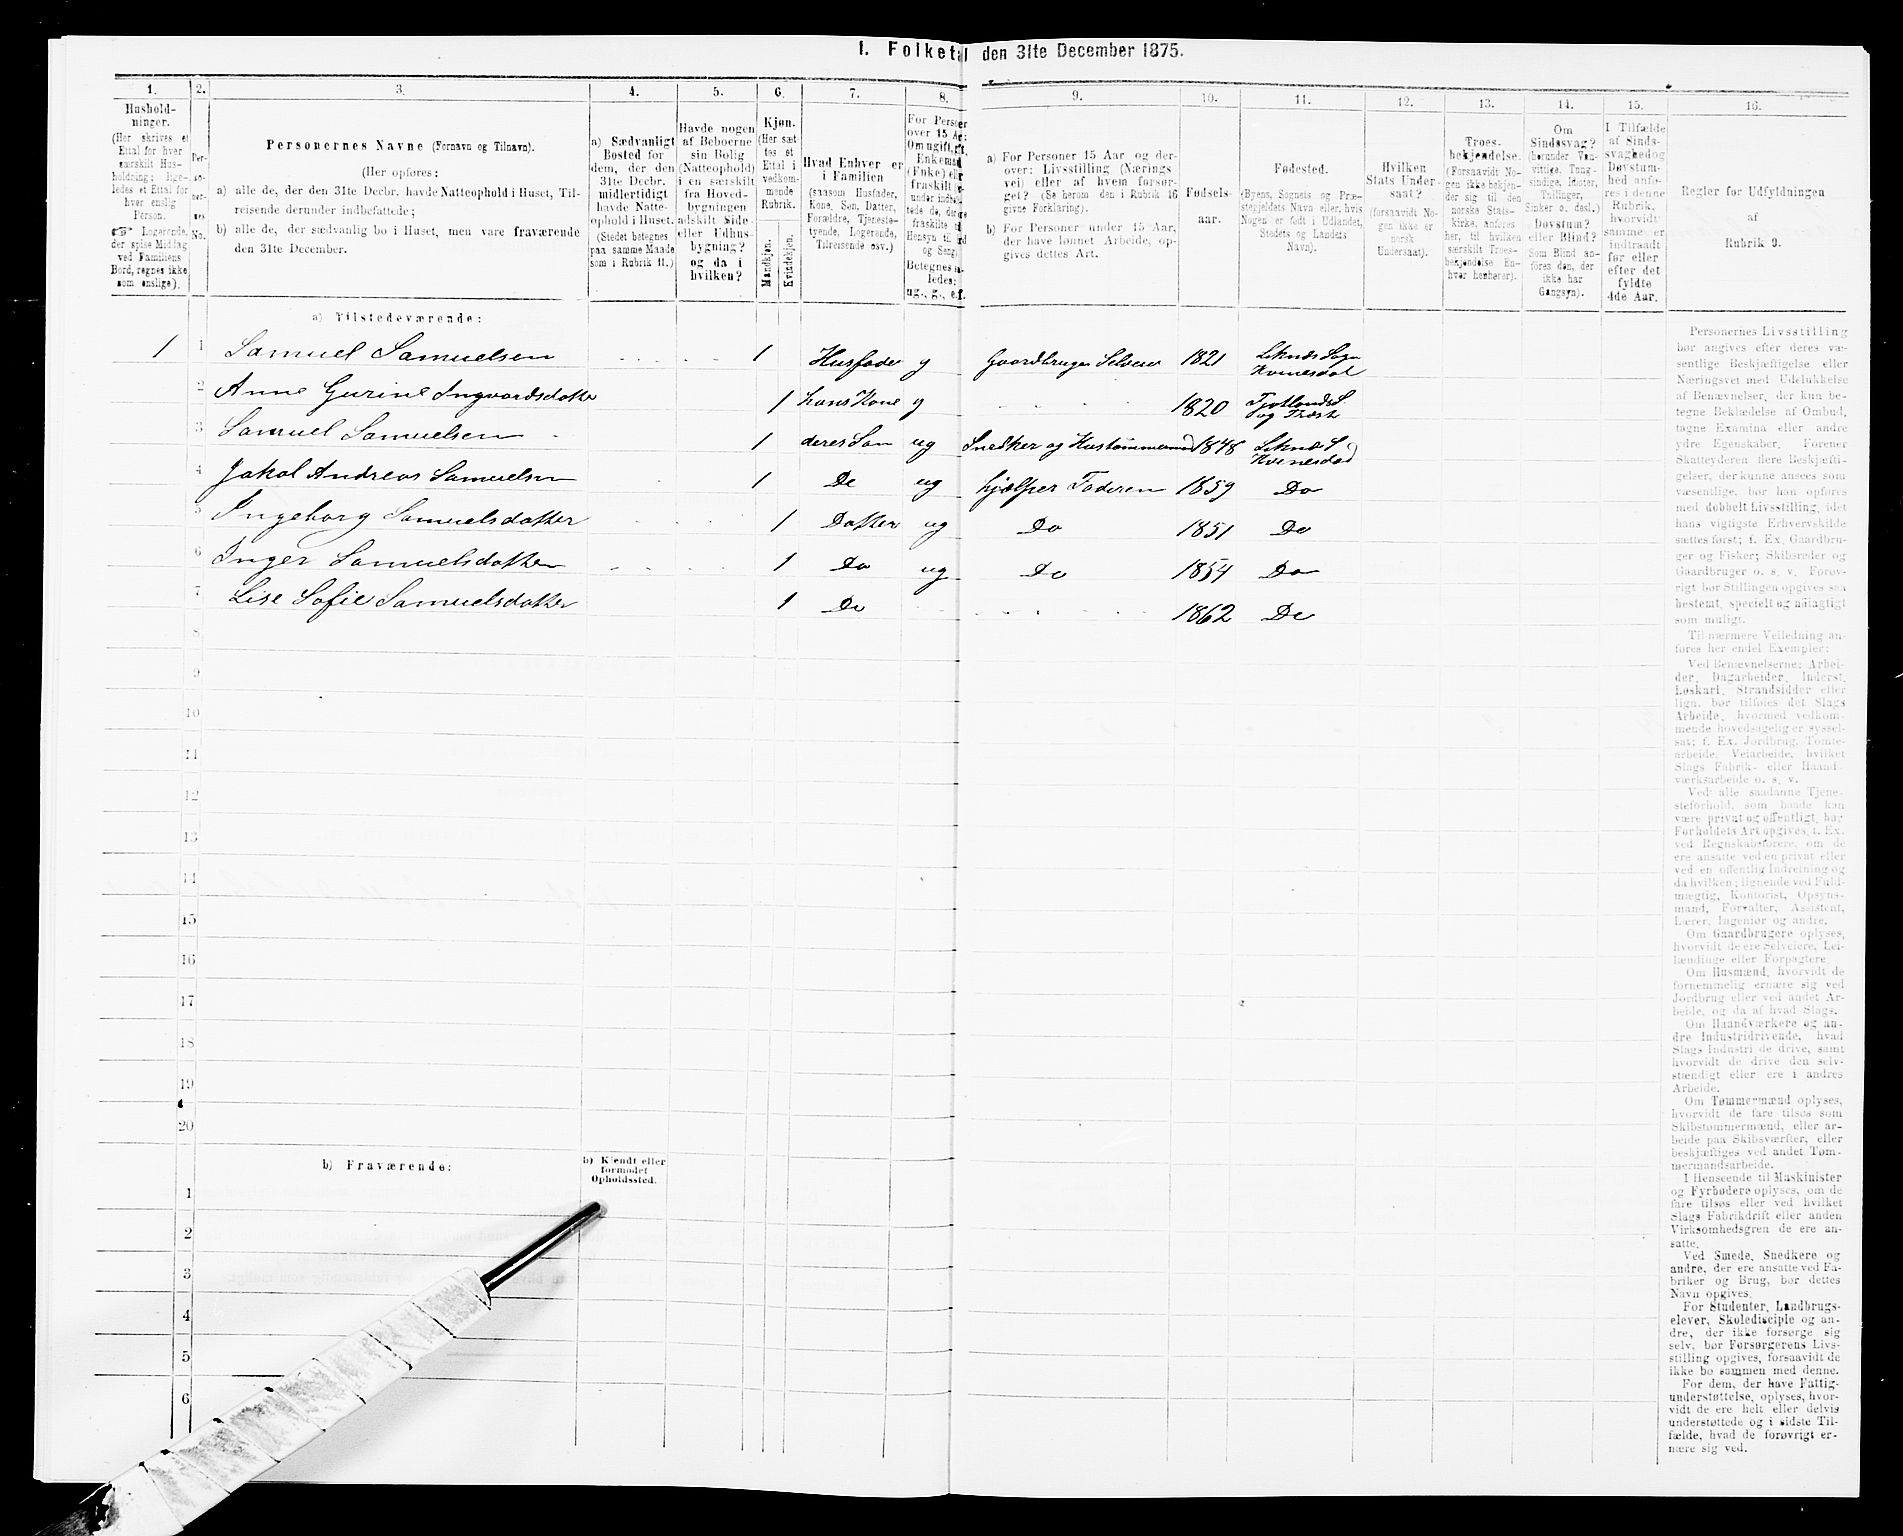 1. Folketal den 31te December 1875.
1.
Hushold-
ninger.
(Her skrives et
Ettal for hver
særskilt Hus-
holdning; lige-
ledes et Ettal for
hver enslig
Person.
☞ Logerende,
der spise Middag
ved Familiens
Bord, regnes ikke
som enslige).
2.
Per-
so-
ner-
nes
No.
3.
Personernes Navne (Fornavn og Tilnavn).
(Her opføres:
a) alle de, der den 31te Decbr. havde Natteophold i Huset, Til-
reisende derunder indbefattede;
b) alle de, der sædvanlig bo i Huset, men vare fraværende
den 31te December.
4.
a) Sædvanligt
Bosted for
dem, der den
31te Decbr.
midlertidigt
havde Natte-
ophold i Huset.
(Stedet betegnes
paa samme Maade
som i Rubrik 11.)
5.
Havde nogen
af Beboerne
sin Bolig
(Natteophold)
i en særskilt
fra Hoved-
bygningen
adskilt Side-
eller Udhus-
bygning?
og da i
hvilken?
6.
Kjøn.
(Her sæt-
tes et
Ettal i
vedkom-
mende
Rubrik.
Mandkjøn.
Kvindekjøn.
7.
Hvad Enhver er
i Familien
(saasom Husfader,
Kone, Søn, Datter,
Forældre, Tjeneste-
tyende, Logerende,
Tilreisende osv.)
8.
For Personer
over 15 Aar:
Om ugift, gift,
Enkemand
(Enke) eller
fraskilt
Betegnes saa-
ledes:
ug., g., e.f.
9.
a) For Personer 15 Aar og der-
over: Livsstilling (Nærings-
vei) eller af hvem forsør-
get? (Se herom den i Rubrik 16
givne Forklaring).
b) For Personer under 15 Aar,
der have lønnet Arbeide, op-
gives dettes Art.
10.
Fødsels-
aar.
11.
Fødested.
(Byens, Sognets og Præ-
stegjeldets Navn eller, hvis
Nogen er født i Udlandet,
Stedets og Landets
Navn).
12.
Hvilken
Stats Under-
saat?
(forsaavidt No-
gen ikke er
norsk
Undersaat).
13.
Troes-
bekjendelse.
(Forsaavidt No-
gen ikke bekjen-
der sig til den
norske Stats-
kirke, anføres
her, til hvilken
særskilt Troes-
bekjendelse En-
hver henhører).
14.
Om
Sindssvag?
(herunder Van-
vittige, Tung-
sindige, Idioter,
Tullinger,
Sinker o. desl.)
Døvstum?
eller Blind?
Som Blind an-
føres den, der
ikke har
Gangsyn).
15.
I Tilfælde
af Sinds-
svaghed og
Døvstum-
hed anfø-
res i denne
Rubrik,
hvorvidt
samme er
indtraadt
før eller
efter det
fyldte
4de Aar.
16.
Regler for Udfyldningen
af
Rubrik 9.
a) Tilstedeværende:
1 1 Samuel Samuelsen 1 Husfader g Gaardbruger Selveier 1821 Liknæs Sogn
Kvinesdal
2 Anne Gurine Ingvardsdatter 1 hans Kone g 1820 Fjotlands S.
og Præst
3 Samuel Samuelsen 1 deres Søn ug Snedker og Hustømmermand 1848 Liknæs S
Kvinesdal
4 Jakob Andreas Samuelsen 1 Do ug hjælper Faderen 1859 Do
5 Ingeborg Samuelsdatter 1 Datter ug Do 1851 Do
6 Inger Samuelsdatter 1 Do ug Do 1854 Do
7 Lise Sofie Samuelsdatter 1 Do 1862 Do
8
9
10
11
12
13
14
15
16
17
18
19
20
b) Fraværende:
b) Kjendt eller
formodet
Opholdssted.
1
2
3
4
5
6
Personernes Livsstilling
bør angives efter deres væ-
sentlige Beskjæftigelse eller
Næringsvei med Udelukkelse
af Benævnelser, der kun be-
tegne Beklædelse af Ombud,
tagne Examina eller andre
ydre Egenskaber. Forener
Skatteyderen flere Beskjæfti-
gelser, der kunne ansees som
væsentlige, bør han opføres
med dobbelt Livsstilling, idet
hans vigtigste Erhvervskilde
sættes først; f. Ex. Gaardbru-
ger og Fisker; Skibsreder og
Gaardbruger o. s. v. Forøv-
rigt bør Stillingen opgives saa
bestemt, specielt og nøiagtigt
som muligt.
Til nærmere Veiledning an-
føres her endel Exempler:
Ved Benævnelserne: Arbei-
der, Dagarbeider, Inderst,
Løskarl, Strandsidder eller
lign. bør tilføies det Slags
Arbeide, hvormed vedkom-
mende hovedsagelig er syssel-
sat; f. Ex. Jordbrug, Tomte-
arbeide, Veiarbeide, hvilket
Slags Fabrik- eller Haand-
værksarbeide o. s. v.
Ved alle saadanne Tjene-
steforhold, som baade kan
være privat og offentligt, bør
Forholdets Art opgives, f. Ex.
ved Regnskabsførere, om de
ere ansatte ved en privat eller
ved en offentlig Indretning og
da hvilken; lignende ved Fuld-
mægtig, Kontorist, Opsyns-
mand, Forvalter, Assistent,
Lærer, Ingeniør og andre.
Om Gaardbrugere oplyses,
hvorvidt de ere Selveiere, Lei-
lændinge eller Forpagtere.
Om Husmænd, hvorvidt de
fornemmelig ernære sig ved
Jordbrug eller ved andet Ar-
beide, og da af hvad Slags.
Om Haandværkere og an-
dre Industridrivende, hvad
Slags Industri de drive, samt
hvorvidt de drive den selv-
stændigt eller ere i andres
Arbeide.
Om Tømmermænd oplyses,
hvorvidt de fare tilsøs som
Skibstømmermænd, eller ar-
beide paa Skibsværfter, eller
beskjæftiges ved andet Tøm-
mermandsarbeide.
I Henseende til Maskinister
og Fyrbødere oplyses, om de
fare tilsøs eller ved hvilket
Slags Fabrikdrift eller anden
Virksomhedsgren de ere an-
satte.
Ved Smede, Snedkere og
andre, der ere ansatte ved Fa-
briker og Brug, bør dettes
Navn opgives.
For Studenter, Landbrugs-
elever, Skoledisciple og an-
dre, der ikke forsørge sig
selv, bør Forsørgerens Livs-
stilling opgives, forsaavidt de
ikke bo sammen med denne.
For dem, der have Fattig-
understøttelse, oplyses, hvor-
vidt de ere helt eller delvis
understøttede og i sidste Til-
fælde, hvad de forøvrigt er-
nære sig ved.